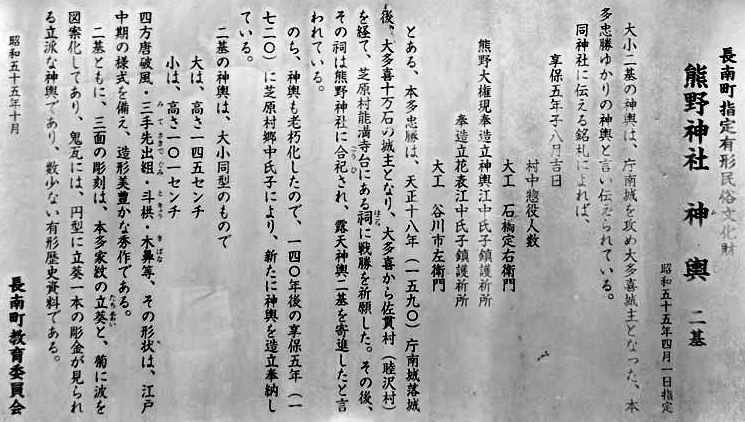 長南町指定有形民俗文化財
熊野神社 神輿 二基
みこし
昭和五十五年四月一日指定
大小二基の神輿は、庁南城を攻め大多喜城主となった、本
多忠勝ゆかりの神輿と言い伝えられている。
同神社に伝える銘札によれば、
享保五年子八月吉日
村中惣役人数
大工 石橋定右衛門
熊野大権現奉造立神輿江中氏子鎮護祈所
奉造立花表江中氏子鎮護祈所
大工 谷川市左衛門
とある、本多忠勝は、天正十八年(一五九〇)庁南城落城
後、大多喜十万石の城主となり、大多喜から佐貫村(睦沢村)
を経て、芝原村能満寺台にある祠に戦勝を祈願した。その後、
ほこら
その祠は熊野神社に合祀され、露天神輿二基を寄進したと言
ごうひ
われている。
のち、神輿も老朽化したので、一四〇年後の享保五年(一
七二〇)に芝原村郷中氏子により、新たに神輿を造立奉納し
ている。
二基の神輿は、大小同型のもので
大は、高さ一四五センチ
小は、高さ一〇一センチ
四方唐破風・三手先出組・斗栱・木鼻等、その形状は、江戸
みてさきでぐみ ときょう きばな
中期の様式を備え、造形美豊かな秀作である。
二基ともに、三面の彫刻は、本多家紋の立葵と、菊に波を
たちあおい
図案化してあり、鬼瓦には、円型に立葵一本の彫金が見られ
る立派な神輿であり、数少ない有形歴史資料である。
昭和五十五年十月
長南町教育委員会